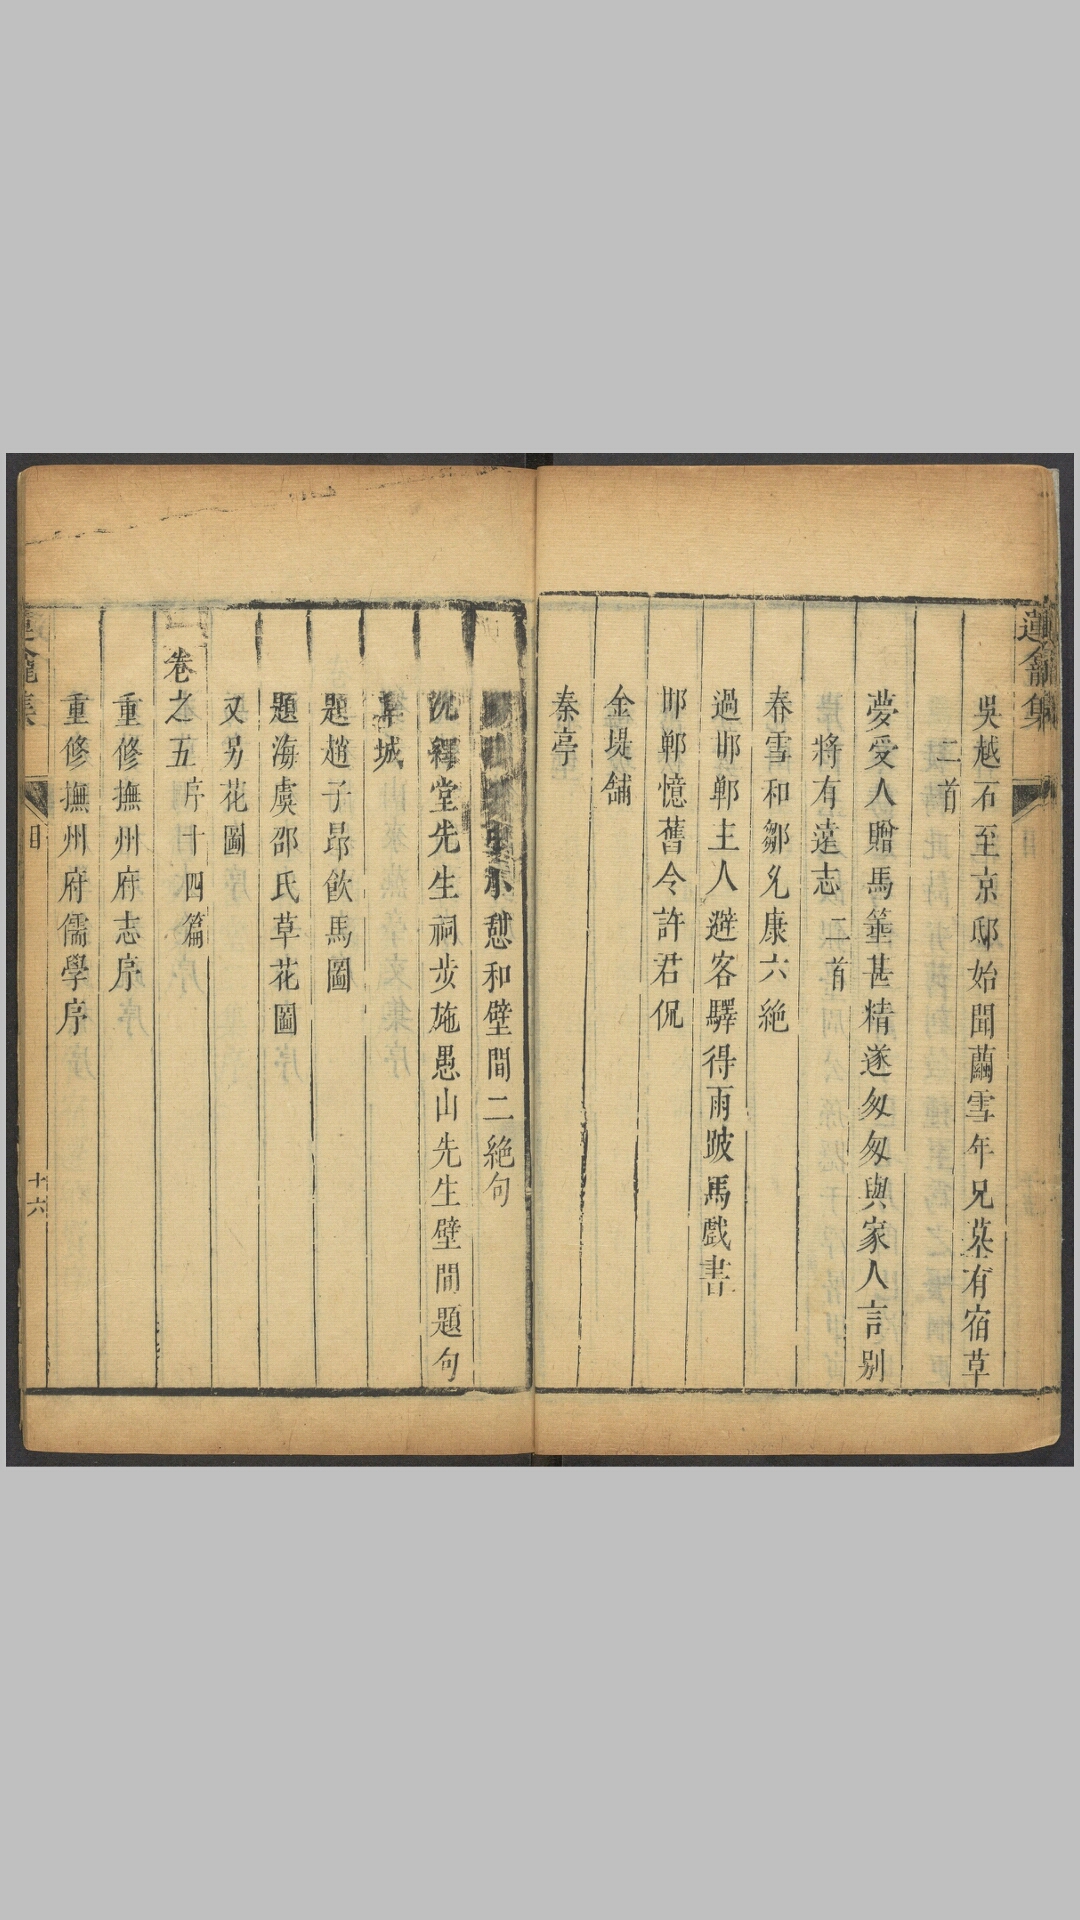 蓮龕集
目
吳越石至京邸始聞繭雪年兄墓有宿草
二首
夢受人贈馬箠甚精遂匆匆與家人言别
將有遠志二首
春雪和鄒允康六絶
過邯鄲主人避客驛得雨跛馬戲書
邯鄲憶舊令許君侃
金堤舖
秦亭
小憩和壁間二絶句
沈繹堂先生祠步施愚山先生壁間題句
阜城
題趙子昂飲馬圖
題海虞邵氏草花圖
又另花圖
卷之五序十四篇
重修撫州府志序
重修撫州府儒學序
目
十六